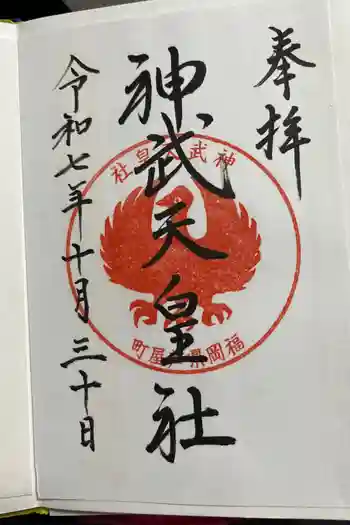 奉拝
神武天皇社
令和七年十月三十日
神武天皇社
福岡県芦屋町